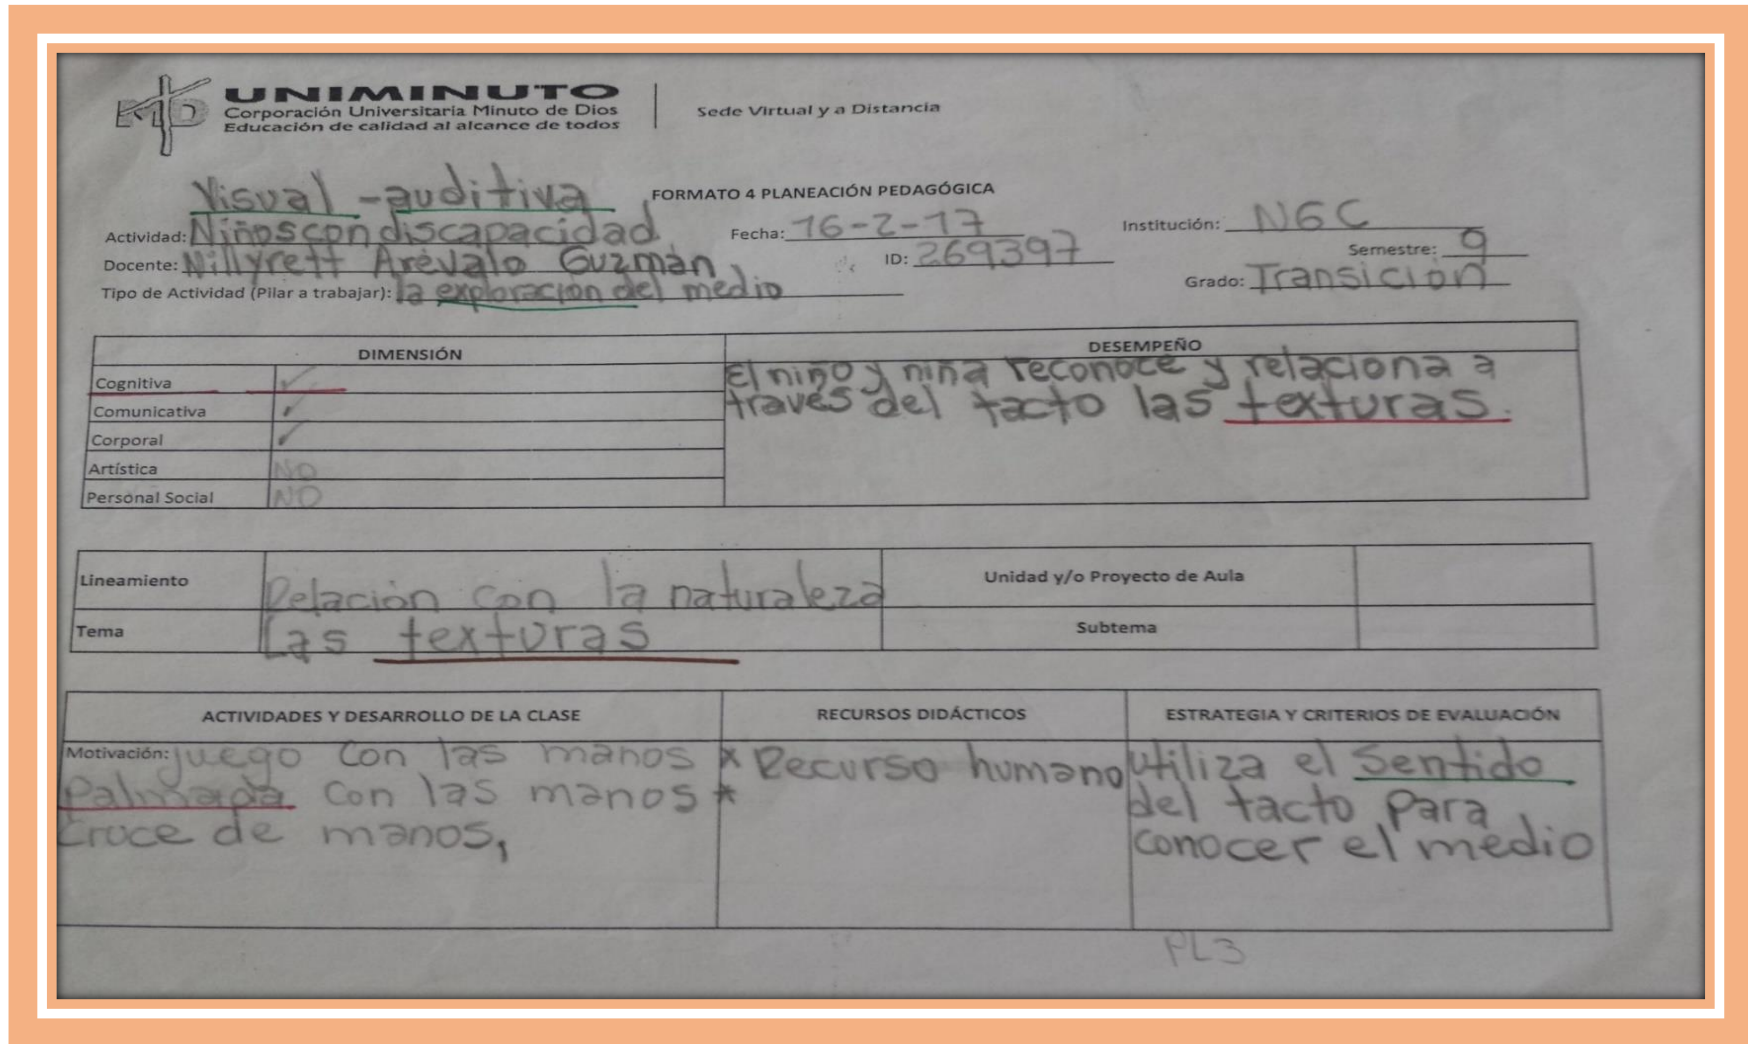 UNIMINUTO
Corporación Universitaria Minuto de Dios
Educación de calidad al alcance de todos
Sede Virtual y a Distancia
FORMATO 4 PLANEACIÓN PEDAGÓGICA
Visual - auditiva
Actividad: Niños con discapacidad Fecha: 16-2-17 Institución: NGC
Docente: Nillyrett Arévalo Guzmán ID: 269397 Semestre: 9
Tipo de Actividad (Pilar a trabajar): la exploracion del medio Grado: Transición
DIMENSIÓN DESEMPEÑO
Cognitiva ✓ El niño y niña reconoce y relaciona a
Comunicativa ✓ través del tacto las texturas.
Corporal ✓
Artística NO
Personal Social NO
Lineamiento Relación con la naturaleza Unidad y/o Proyecto de Aula
Tema Las texturas Subtema
ACTIVIDADES Y DESARROLLO DE LA CLASE RECURSOS DIDÁCTICOS ESTRATEGIA Y CRITERIOS DE EVALUACIÓN
Motivación: juego con las manos * Recurso humano utiliza el sentido
Palmada con las manos * del tacto para
Cruce de manos, conocer el medio
PL3